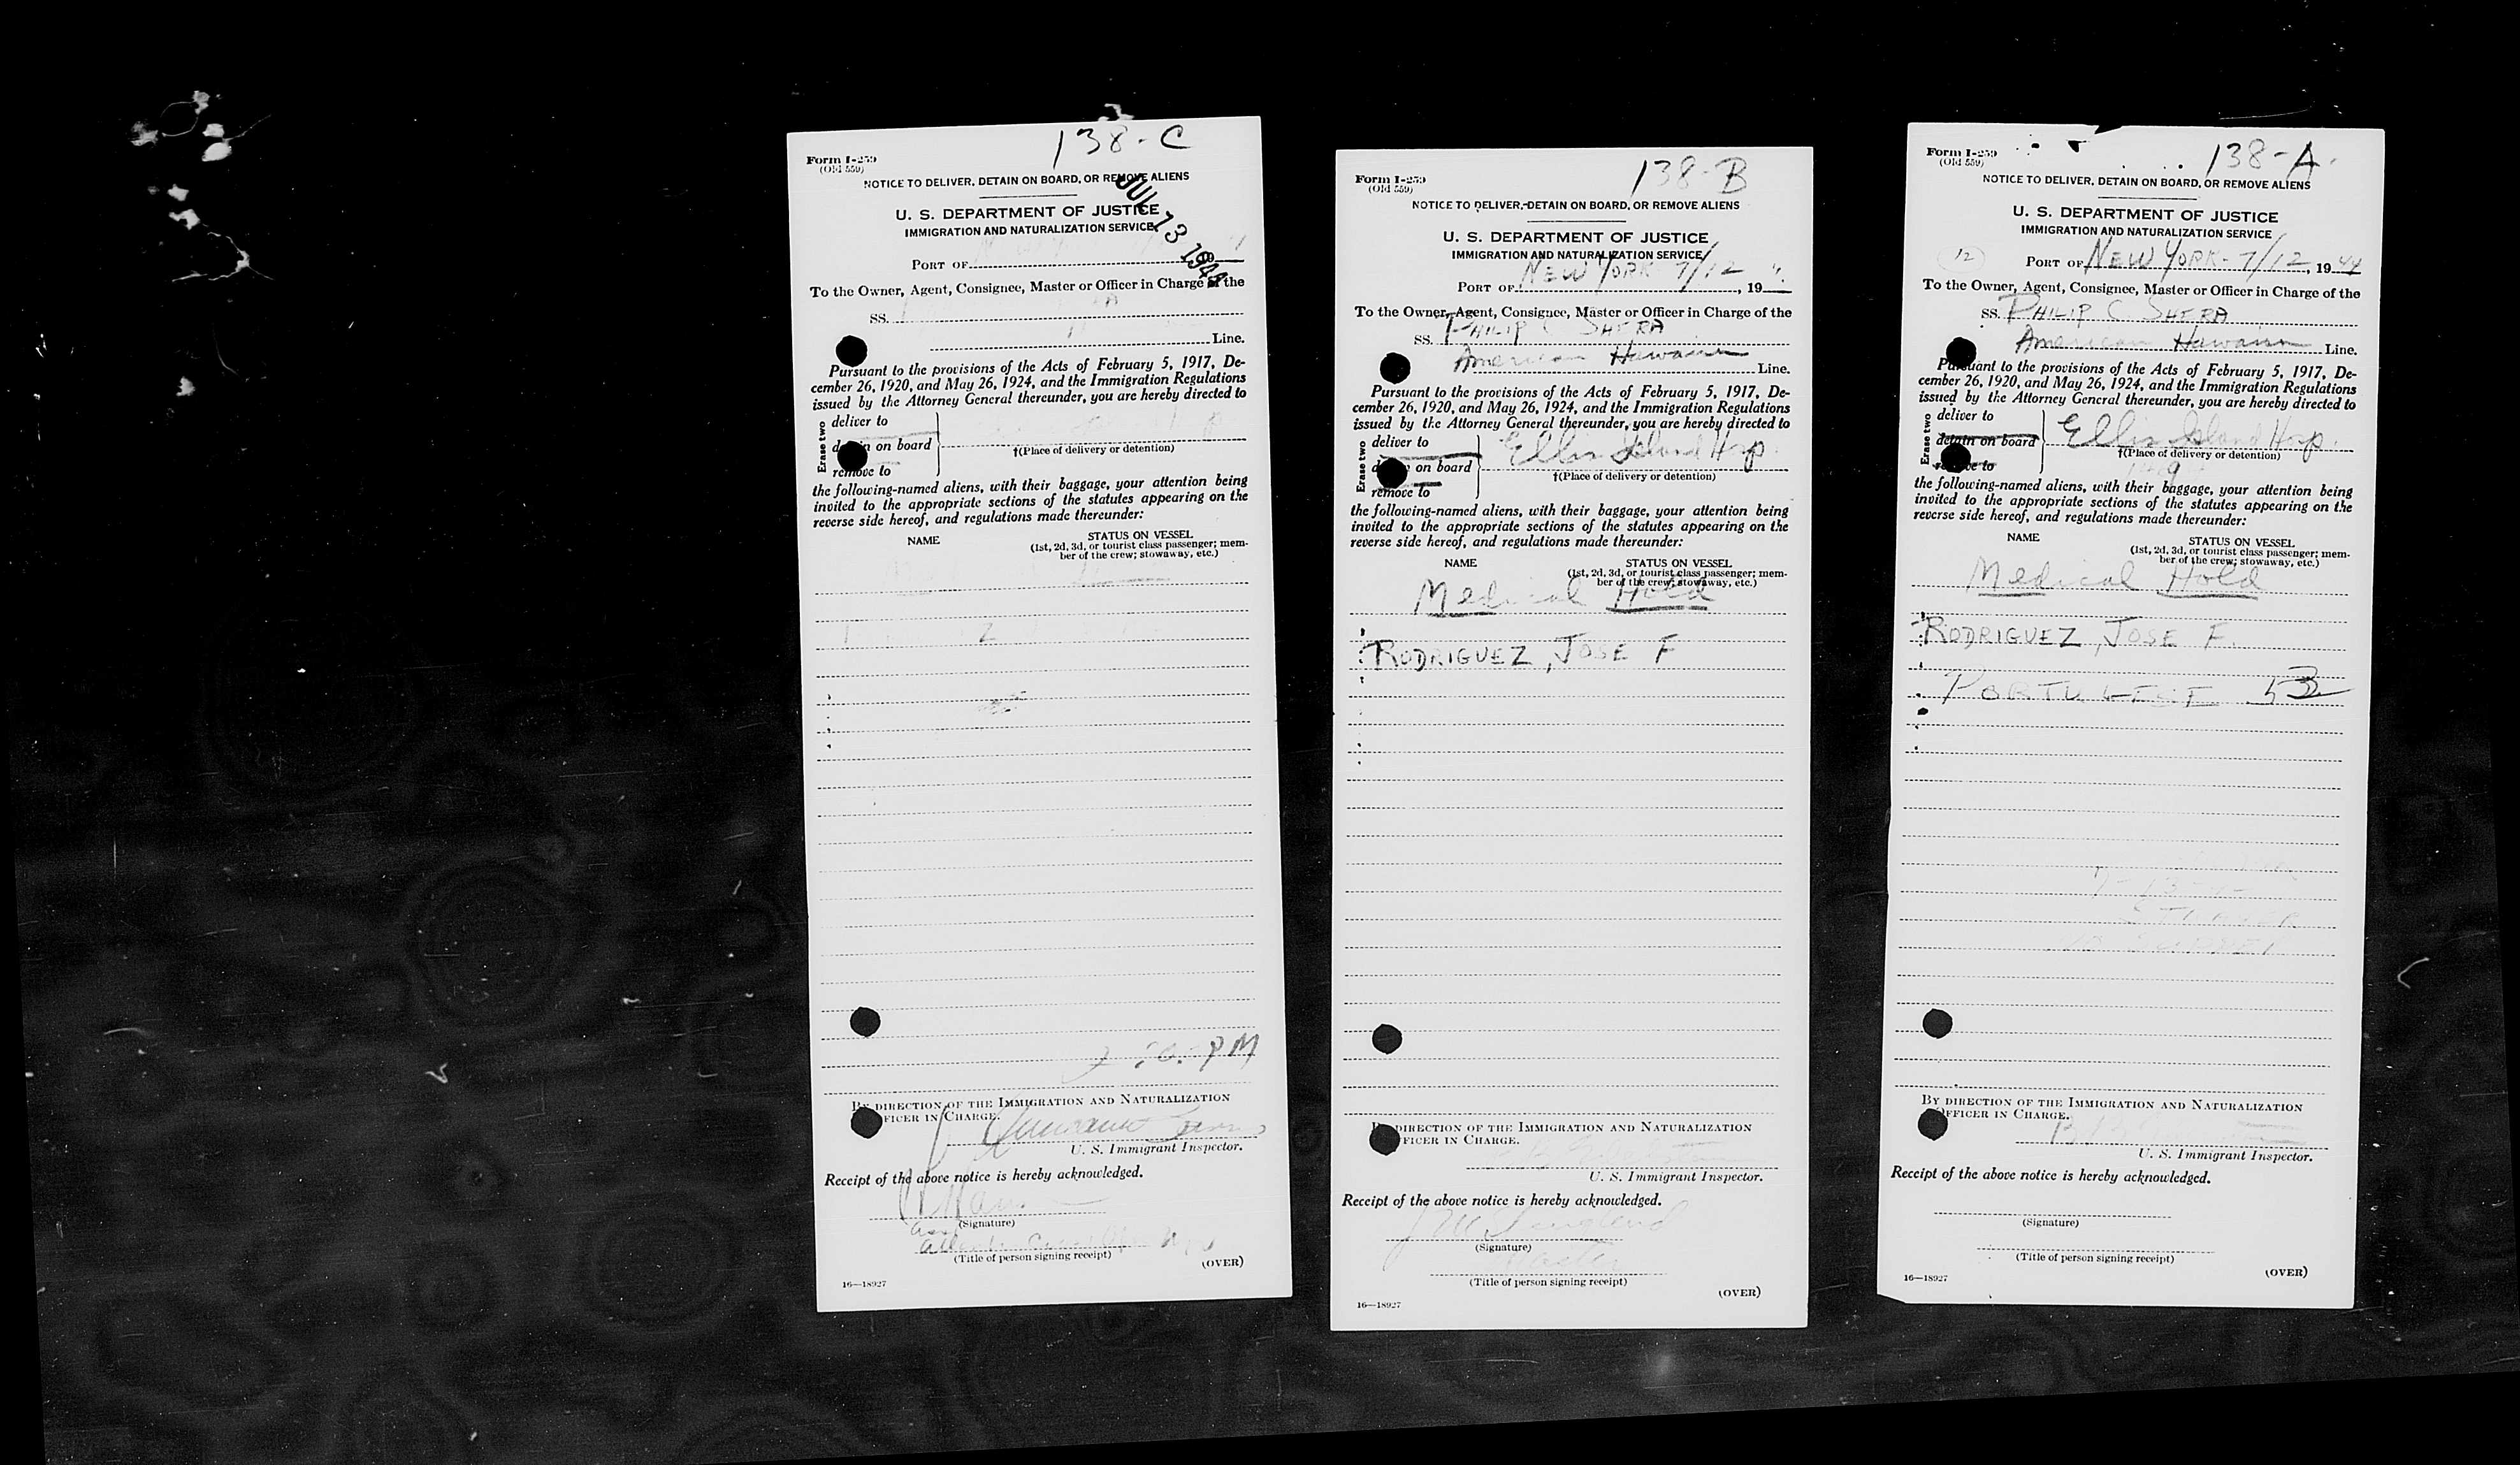 138-C
Form I-259
(Old 559)
NOTICE TO DELIVER, DETAIN ON BOARD, OR REMOVE ALIENS
U. S. DEPARTMENT OF JUSTICE
IMMIGRATION AND NATURALIZATION SERVICE
JUL 13 1944
PORT OF
To the Owner, Agent, Consignee, Master or Officer in Charge of the
SS.
Line.
Pursuant to the provisions of the Acts of February 5, 1917, De-
cember 26, 1920, and May 26, 1924, and the Immigration Regulations
issued by the Attorney General thereunder, you are hereby directed to
Erase two
deliver to
on board
remove to
†(Place of delivery or detention)
the following-named aliens, with their baggage, your attention being
invited to the appropriate sections of the statutes appearing on the
reverse side hereof, and regulations made thereunder:
NAME
STATUS ON VESSEL
(1st, 2d, 3d, or tourist class passenger; mem-
ber of the crew; stowaway, etc.)
PM
BY DIRECTION OF THE IMMIGRATION AND NATURALIZATION
OFFICER IN CHARGE.
U. S. Immigrant Inspector.
Receipt of the above notice is hereby acknowledged.
(Signature)
(Title of person signing receipt)
(OVER)
16—18927
138-B
Form I-259
(Old 559)
NOTICE TO DELIVER, DETAIN ON BOARD, OR REMOVE ALIENS
U. S. DEPARTMENT OF JUSTICE
IMMIGRATION AND NATURALIZATION SERVICE
PORT OF NEW YORK 7/12, 19
To the Owner, Agent, Consignee, Master or Officer in Charge of the
SS. PHILIP C SHERA
American Hawaiian Line.
Pursuant to the provisions of the Acts of February 5, 1917, De-
cember 26, 1920, and May 26, 1924, and the Immigration Regulations
issued by the Attorney General thereunder, you are hereby directed to
Erase two
deliver to
on board
remove to
Ellis Island Hosp.
†(Place of delivery or detention)
the following-named aliens, with their baggage, your attention being
invited to the appropriate sections of the statutes appearing on the
reverse side hereof, and regulations made thereunder:
NAME
STATUS ON VESSEL
(1st, 2d, 3d, or tourist class passenger; mem-
ber of the crew; stowaway, etc.)
Medical Hold
RODRIGUEZ, JOSE F
BY DIRECTION OF THE IMMIGRATION AND NATURALIZATION
OFFICER IN CHARGE.
U. S. Immigrant Inspector.
Receipt of the above notice is hereby acknowledged.
(Signature)
Master
(Title of person signing receipt)
(OVER)
16—18927
138-A
Form I-259
(Old 559)
NOTICE TO DELIVER, DETAIN ON BOARD, OR REMOVE ALIENS
U. S. DEPARTMENT OF JUSTICE
IMMIGRATION AND NATURALIZATION SERVICE
12
PORT OF NEW YORK- 7/12, 1944
To the Owner, Agent, Consignee, Master or Officer in Charge of the
SS. PHILIP C SHERA
American Hawaiian Line.
Pursuant to the provisions of the Acts of February 5, 1917, De-
cember 26, 1920, and May 26, 1924, and the Immigration Regulations
issued by the Attorney General thereunder, you are hereby directed to
Erase two
deliver to
detain on board
remove to
Ellis Island Hosp.
†(Place of delivery or detention)
the following-named aliens, with their baggage, your attention being
invited to the appropriate sections of the statutes appearing on the
reverse side hereof, and regulations made thereunder:
NAME
STATUS ON VESSEL
(1st, 2d, 3d, or tourist class passenger; mem-
ber of the crew; stowaway, etc.)
Medical Hold
RODRIGUEZ, JOSE F.
PORTUGESE 53
BY DIRECTION OF THE IMMIGRATION AND NATURALIZATION
OFFICER IN CHARGE.
U. S. Immigrant Inspector.
Receipt of the above notice is hereby acknowledged.
(Signature)
(Title of person signing receipt)
(OVER)
16—18927